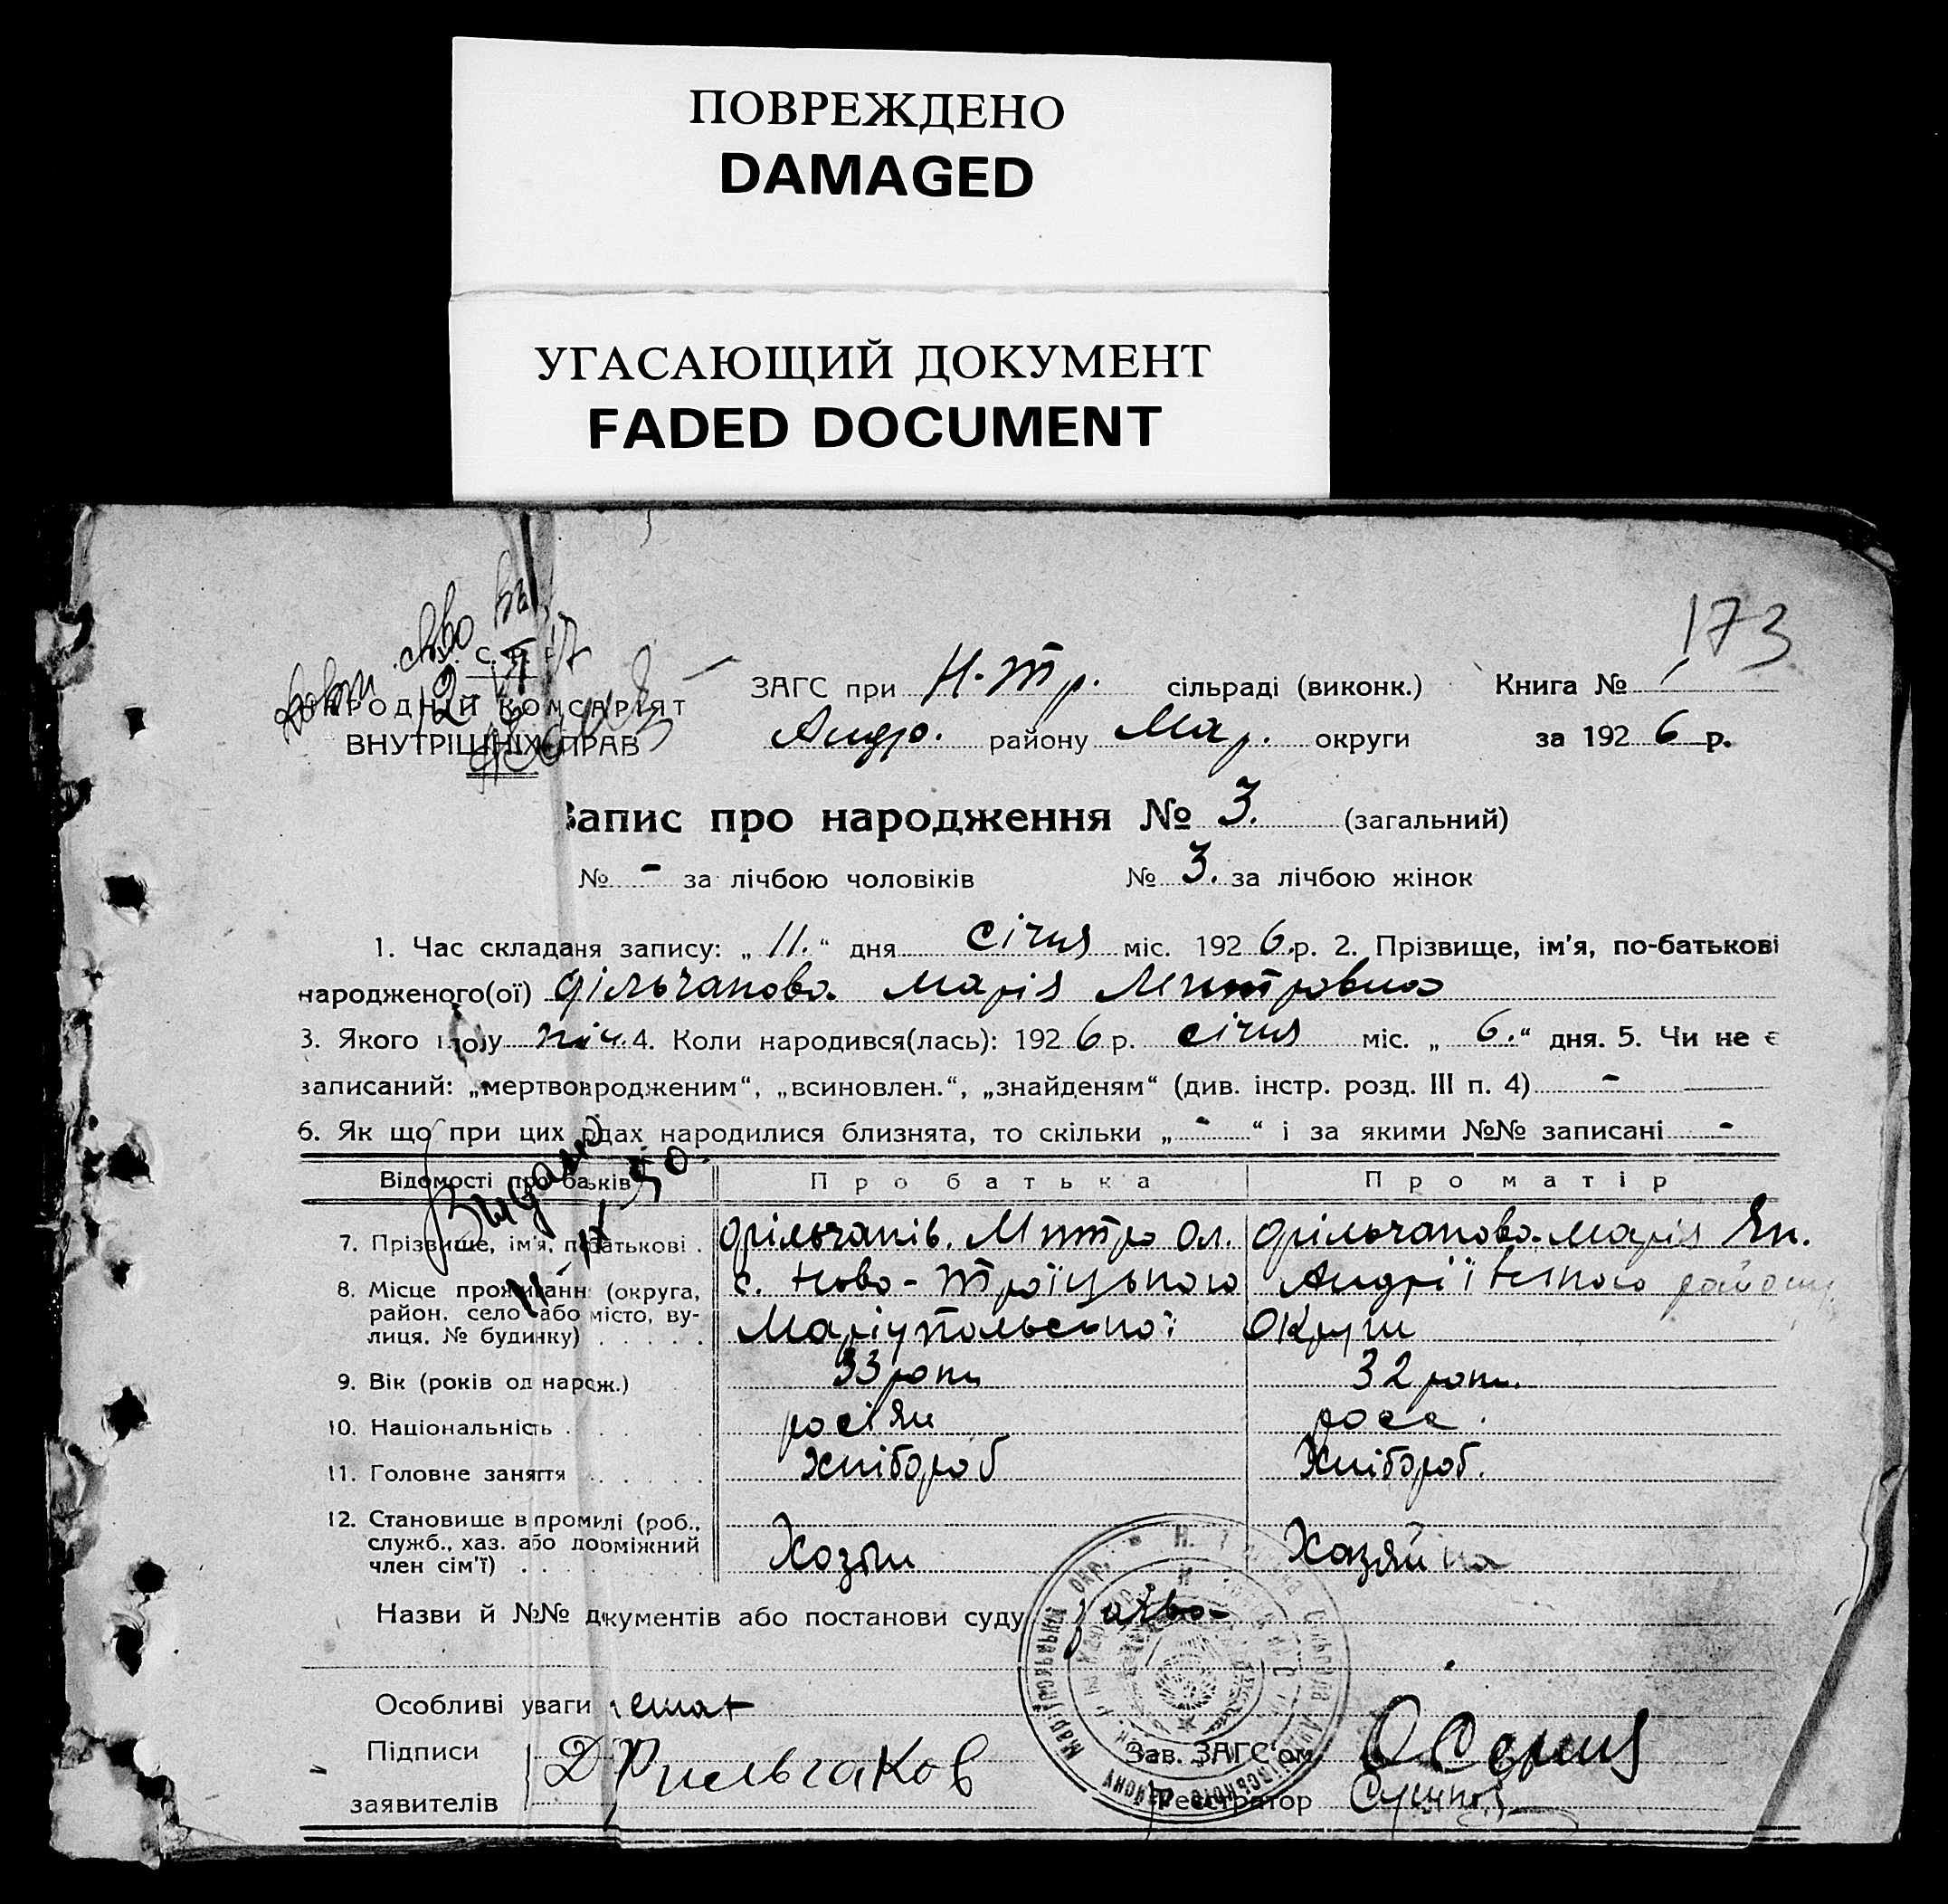 ПОВРЕЖДЕНО
DAMAGED
УГАСАЮЩИЙ ДОКУМЕНТ
FADED DOCUMENT
173
РОДНІЙ КОМІСАРІЯТ
ВНУТРІШНІХ ПРАВ
ЗАГС при Н-Тр. сільраді (виконк.) Книга № 1
Андр. району Мар. округи за 1926 р.
Запис про народження № 3. (загальний)
№ - за лічбою чоловіків № 3. за лічбою жінок
1. Час складаня запису: „11.“ дня січня міс. 1926 р. 2. Прізвище, ім'я, по-батькові
народженого(ої) Фільчакова Марія Митровна
3. Якого полу жін. 4. Коли народився(лась): 1926 р. січня міс. „6.“ дня. 5. Чи не є
записаний: „мертвонародженим“, „всиновлен.“, „знайденям“ (див. інстр. розд. III п. 4) -
6. Як що при цих родах народилися близнята, то скільки „-“ і за якими №№ записані -
Видано
11-IX 50
Відомості про батьків Про батька Про матір
7. Прізвище, ім'я, по-батькові Фільчаків. Митро Ол. Фільчакова Марія Як.
8. Місце проживання (округа, район, село або місто, вулиця, № будинку) с. Ново-Троїцького Андріївського району
Маріупольської Округи
9. Вік (років од нарож.) 33 роки 32 роки.
10. Національність росіян росс.
11. Головне заняття Хлібороб Хлібороб.
12. Становище в промислі (роб., служб., хаз. або допоміжний член сім'ї) Хозяін Хазяйка
Назви й №№ документів або постанови суду заява
Особливі уваги немає
Підписи
заявителів Д Фильчаков
Зав. ЗАГС'ом
Реєстратор